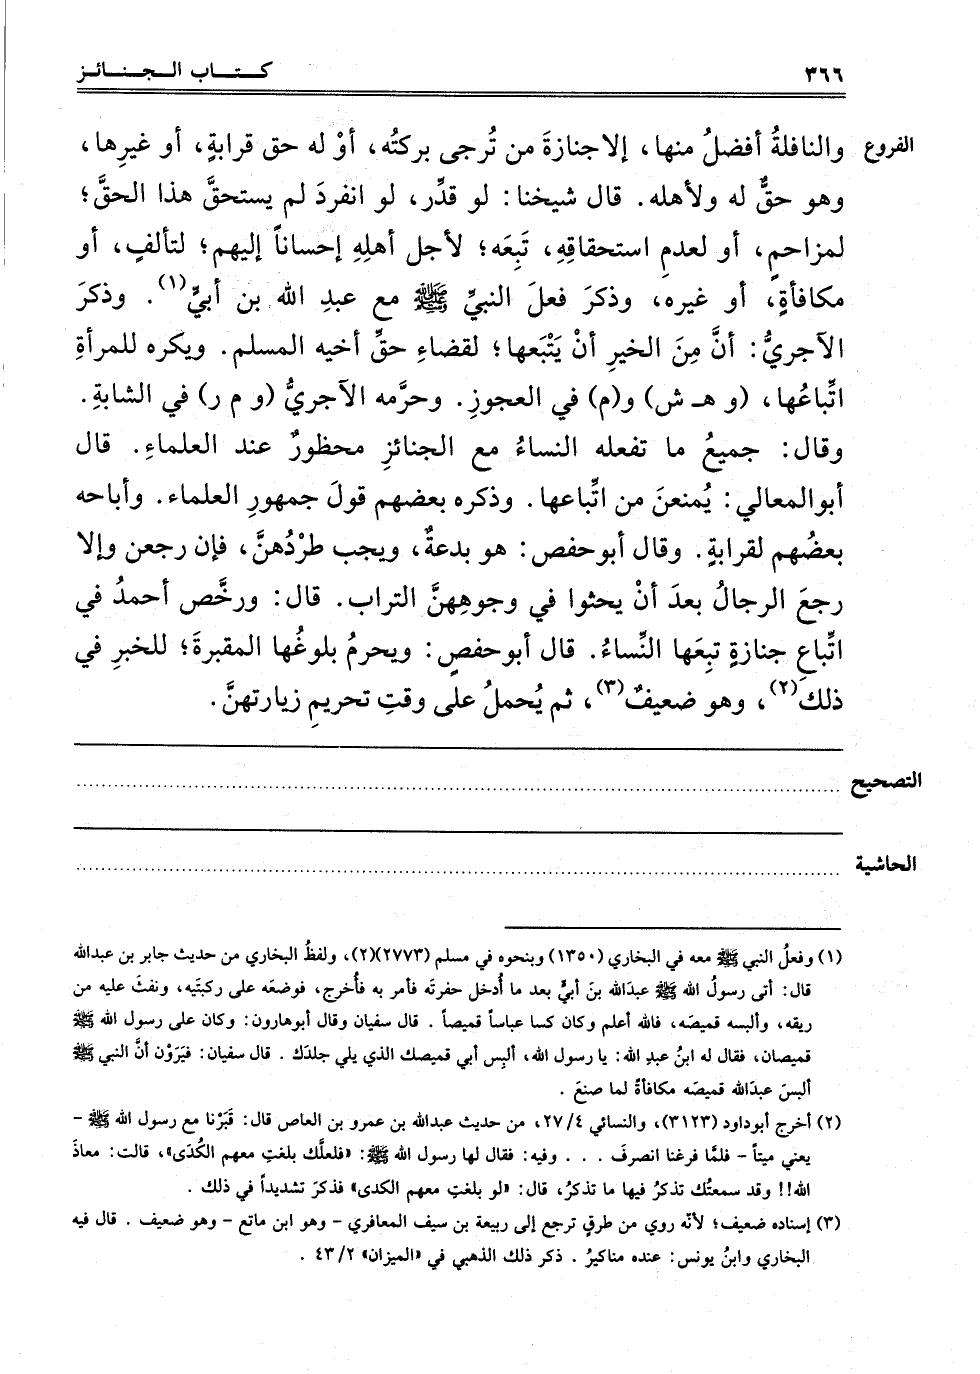 ٣٦٦ كـتـــاب الـجـنـــائـز
الفروع والنافلةُ أفضلُ منها، إلا جنازةَ من تُرجى بركتُه، أوْ له حق قرابةٍ، أو غيرِها،
وهو حقٌّ له ولأهله. قال شيخنا: لو قدِّر، لو انفردَ لم يستحقَّ هذا الحقَّ؛
لمزاحمٍ، أو لعدمِ استحقاقِهِ، تَبِعَه؛ لأجل أهلِهِ إحساناً إليهم؛ لتألفٍ، أو
مكافأةٍ، أو غيره، وذكرَ فعلَ النبيِّ ﷺ مع عبدِ الله بن أبيٍّ(١). وذكرَ
الآجريُّ: أنَّ مِنَ الخيرِ أنْ يَتْبَعها؛ لقضاءِ حقِّ أخيه المسلم. ويكره للمرأةِ
اتِّباعُها، (و هـ ش) و(م) في العجوزِ. وحرَّمه الآجريُّ (و م ر) في الشابةِ.
وقال: جميعُ ما تفعله النساءُ مع الجنائزِ محظورٌ عند العلماءِ. قال
أبوالمعالي: يُمنعنَ من اتِّباعها. وذكره بعضهم قولَ جمهورِ العلماء. وأباحه
بعضُهم لقرابةٍ. وقال أبوحفص: هو بدعةٌ، ويجب طرْدُهنَّ، فإن رجعن وإلا
رجعَ الرجالُ بعدَ أنْ يحثوا في وجوهِهنَّ التراب. قال: ورخَّص أحمدُ في
اتِّباعِ جنازةٍ تبِعَها النِّساءُ. قال أبوحفصٍ: ويحرمُ بلوغُها المقبرةَ؛ للخبرِ في
ذلك(٢)، وهو ضعيفٌ(٣)، ثم يُحملُ على وقتِ تحريمِ زيارتهنَّ.
التصحيح ........................................
الحاشية ........................................
(١) وفعلُ النبي ﷺ معه في البخاري (١٣٥٠) وبنحوه في مسلم (٢٧٧٣)(٢)، ولفظُ البخاري من حديث جابر بن عبدالله
قال: أتى رسولُ الله ﷺ عبدَالله بنَ أبيٍّ بعد ما أُدخل حفرتَه فأمر به فأُخرج، فوضعَه على ركبتَيه، ونفثَ عليه من
ريقه، وألبسه قميصَه، فالله أعلم وكان كسا عباساً قميصاً. قال سفيان وقال أبوهارون: وكان على رسول الله ﷺ
قميصان، فقال له ابنُ عبدِ الله: يا رسول الله، ألبِس أبي قميصك الذي يلي جلدَك. قال سفيان: فيَرَوْن أنَّ النبي ﷺ
ألبسَ عبدَالله قميصَه مكافأةً لما صنعَ.
(٢) أخرج أبوداود (٣١٢٣)، والنسائي ٢٧/٤، من حديث عبدالله بن عمرو بن العاص قال: قَبَرْنا مع رسول الله ﷺ -
يعني ميتاً - فلمَّا فرغنا انصرفَ . . . وفيه: فقال لها رسول الله ﷺ: «فلعلَّك بلغتِ معهم الكُدَى»، قالت: معاذَ
الله!! وقد سمعتُك تذكرُ فيها ما تذكرُ، قال: «لو بلغتِ معهم الكدى» فذكرَ تشديداً في ذلك.
(٣) إسناده ضعيف؛ لأنّه روي من طرقٍ ترجع إلى ربيعة بن سيف المعافري - وهو ابن ماتع - وهو ضعيف. قال فيه
البخاري وابنُ يونس: عنده مناكيرُ. ذكر ذلك الذهبي في «الميزان» ٤٣/٢.